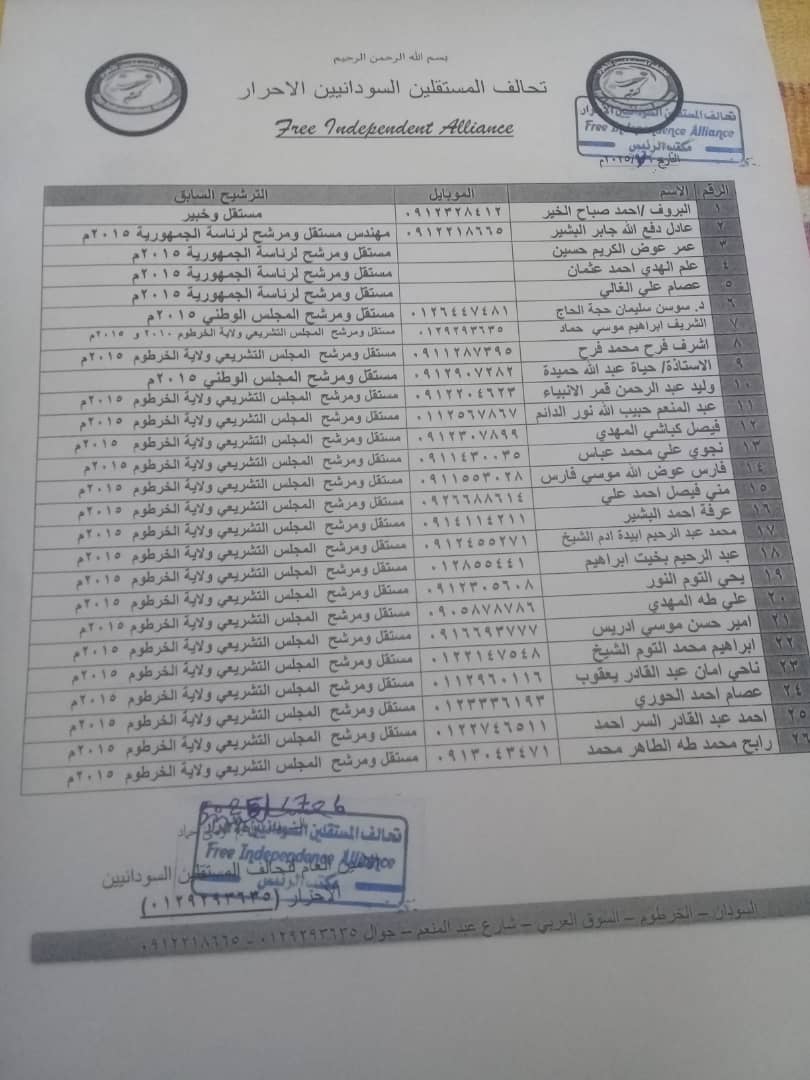 بسم الله الرحمن الرحيم
تحالف المستقلين السودانيين الاحرار
Free Independent Alliance
تحالف المستقلين السودانيين الاحرار
Free Independence Alliance
مكتب الرئيس
الرقم الاسم الموبايل الترشيح السابق
١ البروف /احمد صباح الخير ٠٩١٢٣٢٨٤١٢ مستقل وخبير
٢ عادل دفع الله جابر البشير ٠٩١٢٢١٨٦٦٥ مهندس مستقل ومرشح لرئاسة الجمهورية ٢٠١٥م
٣ عمر عوض الكريم حسين مستقل ومرشح لرئاسة الجمهورية ٢٠١٥م
٤ علم الهدي احمد عثمان مستقل ومرشح لرئاسة الجمهورية ٢٠١٥م
٥ عصام علي الغالي مستقل ومرشح لرئاسة الجمهورية ٢٠١٥م
٦ د. سوسن سليمان حجة الحاج ٠١٢٦٤٤٧٤٨١ مستقل ومرشح المجلس الوطني ٢٠١٥م
٧ الشريف ابراهيم موسي حماد ٠١٢٩٢٩٣٦٣٥ مستقل ومرشح المجلس التشريعي ولاية الخرطوم ٢٠١٠ و ٢٠١٥م
٨ اشرف فرح محمد فرح ٠٩١١٢٨٧٣٩٥ مستقل ومرشح المجلس التشريعي ولاية الخرطوم ٢٠١٥م
٩ الاستاذة/ حياة عبد الله حميدة ٠٩١٢٩٠٧٢٨٢ مستقل ومرشح المجلس الوطني ٢٠١٥م
١٠ وليد عبد الرحمن قمر الانبياء ٠٩١٢٢٠٤٦٢٣ مستقل ومرشح المجلس التشريعي ولاية الخرطوم ٢٠١٥م
١١ عبد المنعم حبيب الله نور الدائم ٠١١٢٥٦٧٨٦٧ مستقل ومرشح المجلس التشريعي ولاية الخرطوم ٢٠١٥م
١٢ فيصل كباشي المهدي ٠٩١٢٣٠٧٨٩٩ مستقل ومرشح المجلس التشريعي ولاية الخرطوم ٢٠١٥م
١٣ نجوي علي محمد عباس ٠٩١١٤٣٠٠٣٥ مستقل ومرشح المجلس التشريعي ولاية الخرطوم ٢٠١٥م
١٤ فارس عوض الله موسي فارس ٠٩١١٥٥٣٠٢٨ مستقل ومرشح المجلس التشريعي ولاية الخرطوم ٢٠١٥م
١٥ مني فيصل احمد علي ٠٩٢٦٦٨٨٦١٤ مستقل ومرشح المجلس التشريعي ولاية الخرطوم ٢٠١٥م
١٦ عرفة احمد البشير ٠٩١٤١١٤٢١١ مستقل ومرشح المجلس التشريعي ولاية الخرطوم ٢٠١٥م
١٧ محمد عبد الرحيم ابيدة ادم الشيخ ٠٩١٢٤٥٥٢٧١ مستقل ومرشح المجلس التشريعي ولاية الخرطوم ٢٠١٥م
١٨ عبد الرحيم بخيت ابراهيم ٠١٢٨٥٥٤٤١ مستقل ومرشح المجلس التشريعي ولاية الخرطوم ٢٠١٥م
١٩ يحي التوم النور ٠٩١٢٣٠٥٦٠٨ مستقل ومرشح المجلس التشريعي ولاية الخرطوم ٢٠١٥م
٢٠ علي طه المهدي ٠٩٠٥٨٧٨٧٨٦ مستقل ومرشح المجلس التشريعي ولاية الخرطوم ٢٠١٥م
٢١ امير حسن موسي ادريس ٠٩١٦٦٩٣٧٧٧ مستقل ومرشح المجلس التشريعي ولاية الخرطوم ٢٠١٥م
٢٢ ابراهيم محمد التوم الشيخ ٠١٢٢١٤٧٥٤٨ مستقل ومرشح المجلس التشريعي ولاية الخرطوم ٢٠١٥م
٢٣ ناحي امان عبد القادر يعقوب ٠١١٢٩٦٠١١٦ مستقل ومرشح المجلس التشريعي ولاية الخرطوم ٢٠١٥م
٢٤ عصام احمد الحوري ٠١٢٣٣٣٦١٩٣ مستقل ومرشح المجلس التشريعي ولاية الخرطوم ٢٠١٥م
٢٥ احمد عبد القادر السر احمد ٠١٢٢٧٤٦٥١١ مستقل ومرشح المجلس التشريعي ولاية الخرطوم ٢٠١٥م
٢٦ رابح محمد طه الطاهر محمد ٠٩١٣٠٤٣٤٧١ مستقل ومرشح المجلس التشريعي ولاية الخرطوم ٢٠١٥م
تحالف المستقلين السودانيين الاحرار
Free Independence Alliance
مكتب الرئيس
العام لتحالف المستقلين السودانيين
الاحرار (٠١٢٩٢٩٣٦٣٥)
السودان – الخرطوم – السوق العربي – شارع عبد المنعم – جوال ٠١٢٩٢٩٣٦٣٥ - ٠٩١٢٢١٨٦٦٥